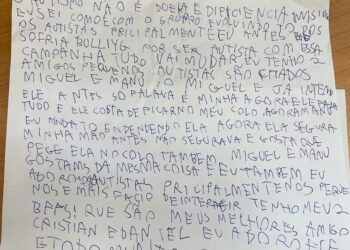 AUTISMO NÃO É DOENÇA E DIFICIENCIA
EU SEI COMO É COM O GRUPPO EVOLUINDO TODOS
OS AUTISTAS PRICIPALMENTE EU ANTES
SOFRIA BULLIYG POR SER AUTISTA COM ESSA
CAMPANHA TUDO VAI MUDAR EU TENHO 2
AMIGOS PEQUENOS AUTISTAS SÃO CITADOS
MIGUEL E MANU O MIGUEL E JÁ
ELE ANTES SO FALAVA É MINHA AGORA ELE FALA
TUDO E ELE COSTA DE FICAR NO MEU COLO AGORA MANU
EU ENDENDO ELA AGORA ELA SEGURA
MINHA MÃO ANTES NÃO SEGURAVA E GOSTA QUE
PEGE ELA NO COLO TAMBEM MIGUEL E MANU
GOSTAMS DA MESMA COISA E EU TAMBEM EU
ADORO OS AUTISTAS PRICIPALMENTE NOS PEQUE
NOS E MAIS FACIO DE INTERAGIR TENHO MEU 2
BFFS! QUE SÃO MEUS MELHORES AMIGO
CRISTIAN E DANIEL EU ADORO ELE
E TODO MUNDO